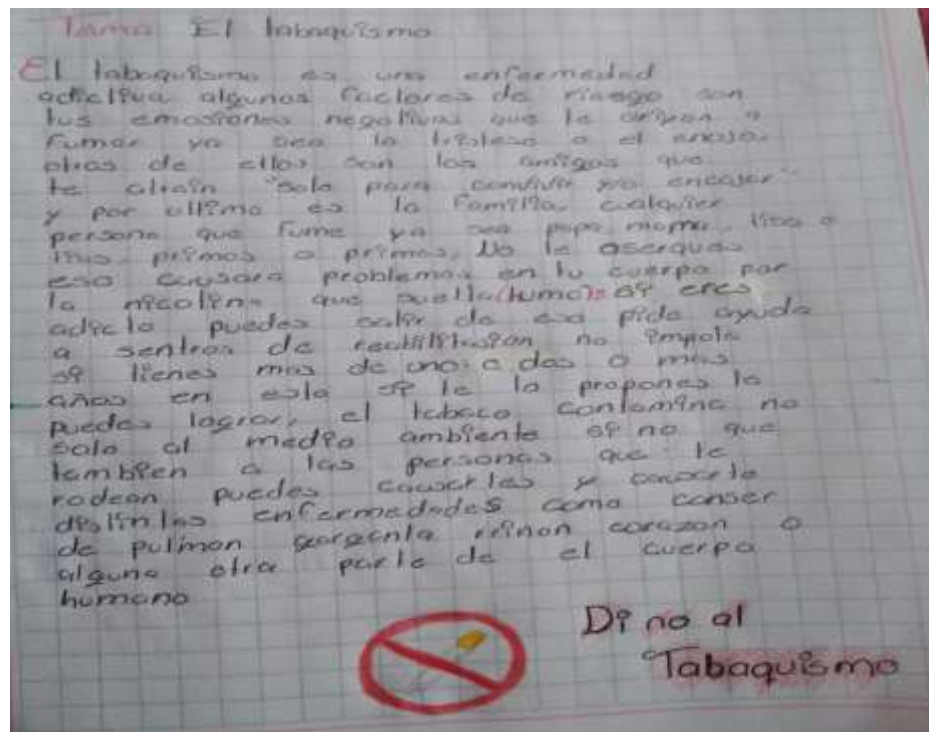 Tema El tabaquismo
El tabaquismo es una enfermedad
adictiva algunos factores de riesgo son
tus emosiones negativas que te orillan a
fumar ya sea la tristesa o el enojo
otros de ellos son los amigos que
te atrain "solo para convivir y/o encajar"
y por ultimo es la familia cualquier
persona que fume ya sea papa mama, tios o
tus primos o primas, No te aserques
eso causara problemas en tu cuerpo por
la nicotina que suelta (humo) si eres
adicto puedes salir de eso pide ayuda
a sentros de no impota
si tienes mas de uno o dos o mas
años en esto si te lo propones lo
puedes lograr, el tabaco contamina no
solo al medio ambiente si no que
tambien a las personas que te
rodean puedes causarles y causarte
distintas enfermedades como canser
de pulmon garganta riñon corazon o
alguna otra parte de el cuerpo
humano
Di no al
Tabaquismo